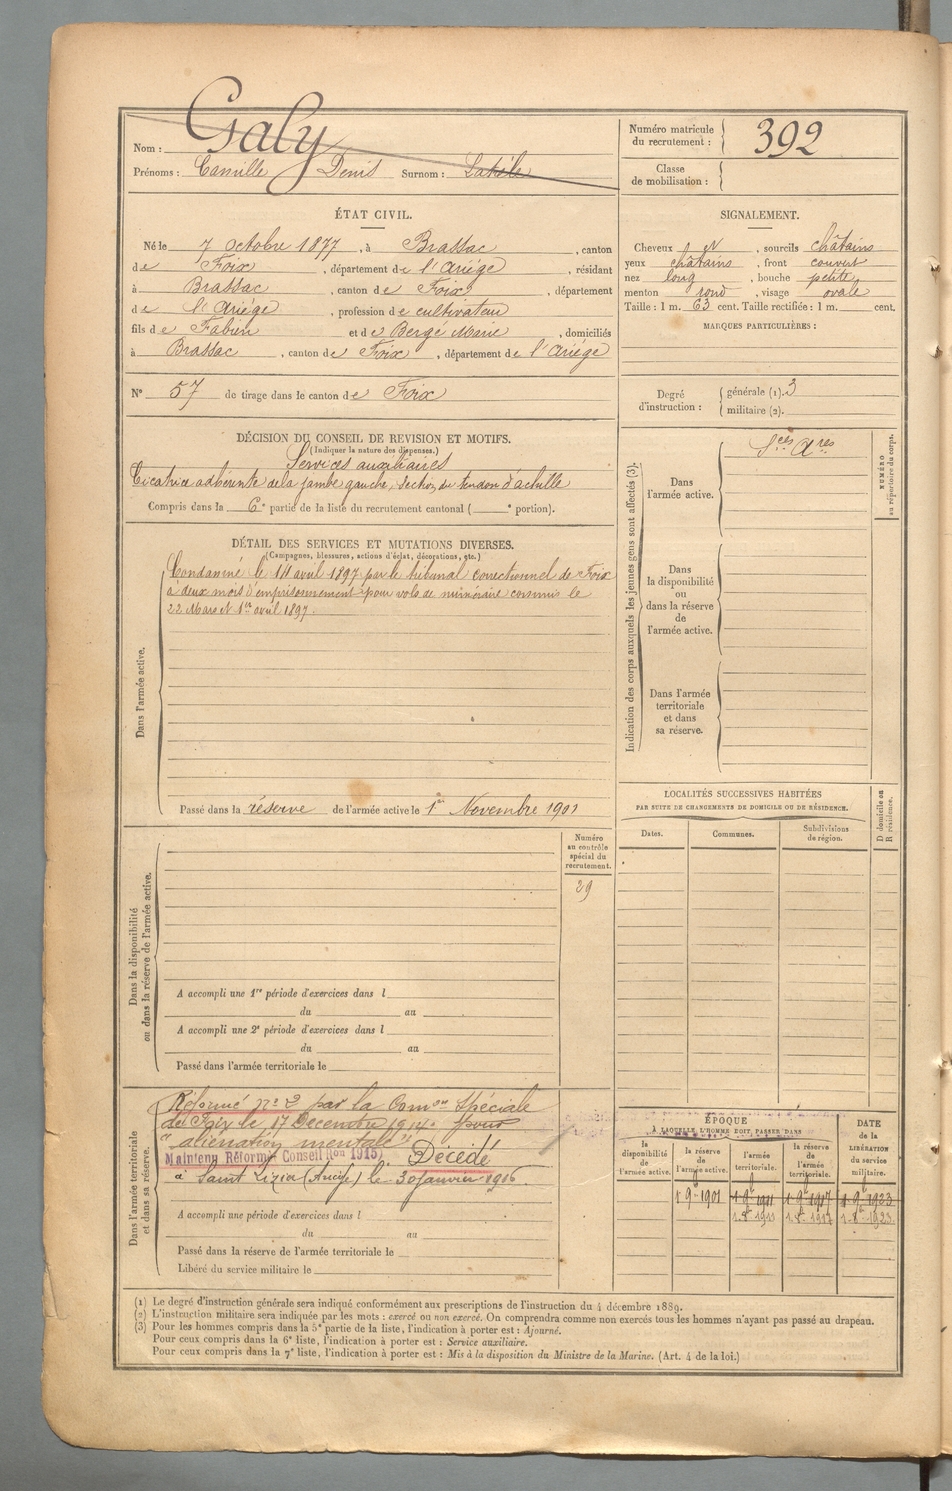 Nom : Galy
Prénoms : Camille Denis Surnom :
Numéro matricule du recrutement : 392
Classe de mobilisation :
ÉTAT CIVIL.
Né le 7 Octobre 1877, à Brassac, canton
de Foix, département de l'Ariège, résidant
à Brassac, canton de Foix, département
de l'Ariège, profession de cultivateur
fils de Fabien et de Bergé Marie, domiciliés
à Brassac, canton de Foix, département de l'Ariège
SIGNALEMENT.
Cheveux et, sourcils châtains
yeux châtains, front couvert
nez long, bouche petite
menton rond, visage ovale
Taille : 1 m. 63 cent. Taille rectifiée : 1 m. cent.
MARQUES PARTICULIÈRES :
N° 57 de tirage dans le canton de Foix
Degré d'instruction : générale (1). 3
militaire (2).
DÉCISION DU CONSEIL DE REVISION ET MOTIFS.
(Indiquer la nature des dispenses.)
Services auxiliaires
Cicatrice adhérente de la jambe gauche, section du tendon d'achille
Compris dans la 6e partie de la liste du recrutement cantonal ( e portion).
DÉTAIL DES SERVICES ET MUTATIONS DIVERSES.
(Campagnes, blessures, actions d'éclat, décorations, etc.)
Dans l'armée active.
Condamné le 14 avril 1897 par le tribunal correctionnel de Foix
à deux mois d'emprisonnement pour vols de numéraire commis le
22 Mars et 1er avril 1897.
Passé dans la réserve de l'armée active le 1er Novembre 1901
Indication des corps auxquels les jeunes gens sont affectés (3).
NUMÉRO au répertoire du corps.
Dans l'armée active.
Sces Ares
Dans la disponibilité ou dans la réserve de l'armée active.
Dans l'armée territoriale et dans sa réserve.
LOCALITÉS SUCCESSIVES HABITÉES
PAR SUITE DE CHANGEMENTS DE DOMICILE OU DE RÉSIDENCE.
D domicile ou R résidence.
Dates. Communes. Subdivisions de région.
Numéro au contrôle spécial du recrutement.
29
Dans la disponibilité ou dans la réserve de l'armée active.
A accompli une 1re période d'exercices dans l
du au
A accompli une 2e période d'exercices dans l
du au
Passé dans l'armée territoriale le
Dans l'armée territoriale et dans sa réserve.
Réformé n° 2 par la Comon Spéciale
de Foix le 17 Décembre 1914 pour
"aliénation mentale"
Maintenu Réformé Conseil Ron 1915) Décédé
à Saint Lizier (Ariège) le 30 janvier 1916.
A accompli une période d'exercices dans l
du au
Passé dans la réserve de l'armée territoriale le
Libéré du service militaire le
ÉPOQUE
À LAQUELLE L'HOMME DOIT PASSER DANS
DATE de la LIBÉRATION du service militaire.
la disponibilité de l'armée active. la réserve de l'armée active. l'armée territoriale. la réserve de l'armée territoriale.
1-9-1901 1-9-1911 1-9-1917 1-9-1923
(1) Le degré d'instruction générale sera indiqué conformément aux prescriptions de l'instruction du 4 décembre 1889.
(2) L'instruction militaire sera indiquée par les mots : exercé ou non exercé. On comprendra comme non exercés tous les hommes n'ayant pas passé au drapeau.
(3) Pour les hommes compris dans la 5e partie de la liste, l'indication à porter est : Ajourné.
Pour ceux compris dans la 6e liste, l'indication à porter est : Service auxiliaire.
Pour ceux compris dans la 7e liste, l'indication à porter est : Mis à la disposition du Ministre de la Marine. (Art. 4 de la loi.)